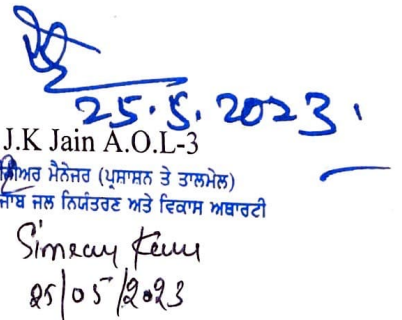 25.5.2023.
J.K Jain A.O.L-3
ਮੈਨੇਜਰ (ਪ੍ਰਸ਼ਾਸ਼ਨ ਤੇ ਤਾਲਮੇਲ)
ਜਲ ਨਿਯੰਤਰਣ ਅਤੇ ਵਿਕਾਸ ਅਥਾਰਟੀ
Simran Kaur
25/05/2023